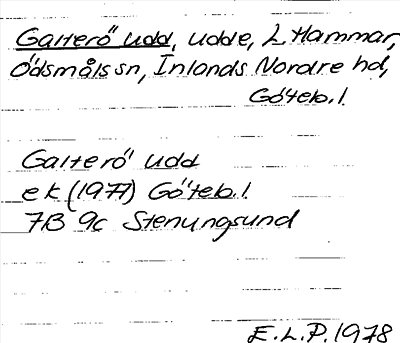 Galterö udd, udde, L Hammar,
Ödsmåls sn, Inlands Nordre hd,
Göteb.l.
Galterö udd
ek (1977) Göteb.l.
7B 9c Stenungsund
E.L.P. 1978